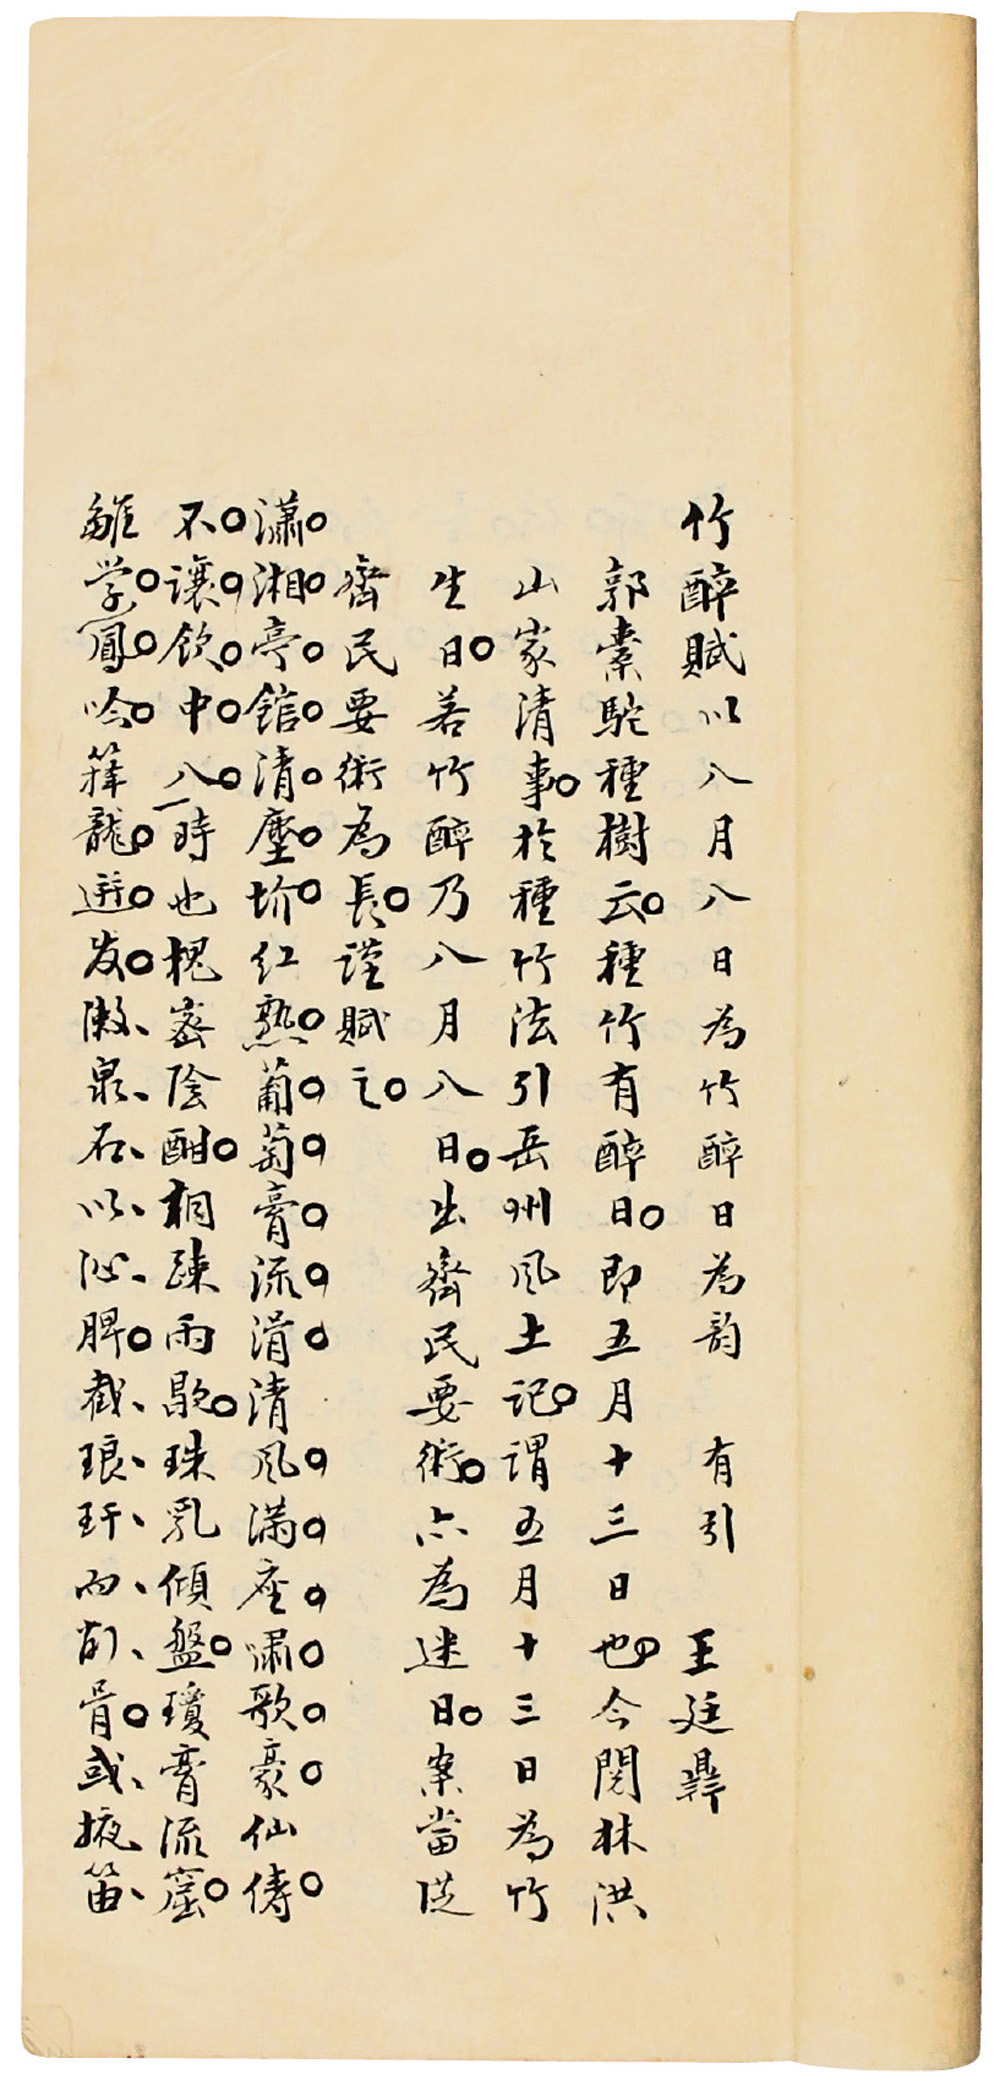 竹醉賦以八月八日為竹醉日為韵 有引 王廷鼎
郭橐駝種樹云種竹有醉日即五月十三日也今閱林洪
山家清事於種竹法引岳州風土記謂五月十三日為竹
生日若竹醉乃八月八日出齊民要術亦為迷日案當從
齊民要術為長謹賦之
瀟湘亭館清塵坋紅熟葡萄膏流滑清風滿座嘯歌豪仙儔
不讓飲中八一時也槐密陰酣桐疎雨歇珠乳傾盤瓊膏流窪
雖学鳳吟籜龍迸发漱泉石以沁脾截琅玕而削骨或掖笛